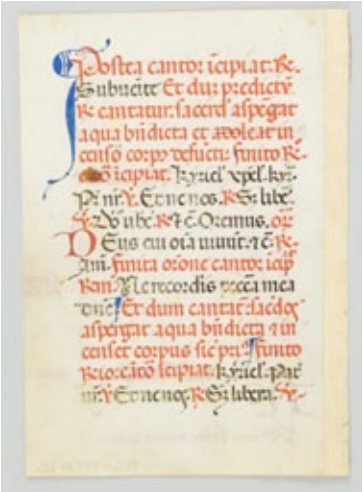 Postea cantor īcipiat. ℟.
Subuēite Et dū℟ predictū
℟ cantatur. sacerd aspergat
aqua bn̄dicta et adoleat in
censo corp⁹ defuncti. finito ℟.
īcipiat. kyriel. xpel. kyr.
Pr̄ nr̄. ℣. Et ne nos. ℟ S; libe.
Oremus. or̄o
Deus cui oīa uiuūt. ⁊ c̄. ℟.
Am̄. finita or̄one cantor īcip̄
Ne recordis pecca mea
dn̄e Et dum cantat̄. sacdos
aspergat aqua bn̄dicta ⁊ in
censet corpus sic pri⁹. finito
īcipiat. kyriel. Pat̄
nr̄. ℣ Et ne nos. ℟ S; libera. ℣.